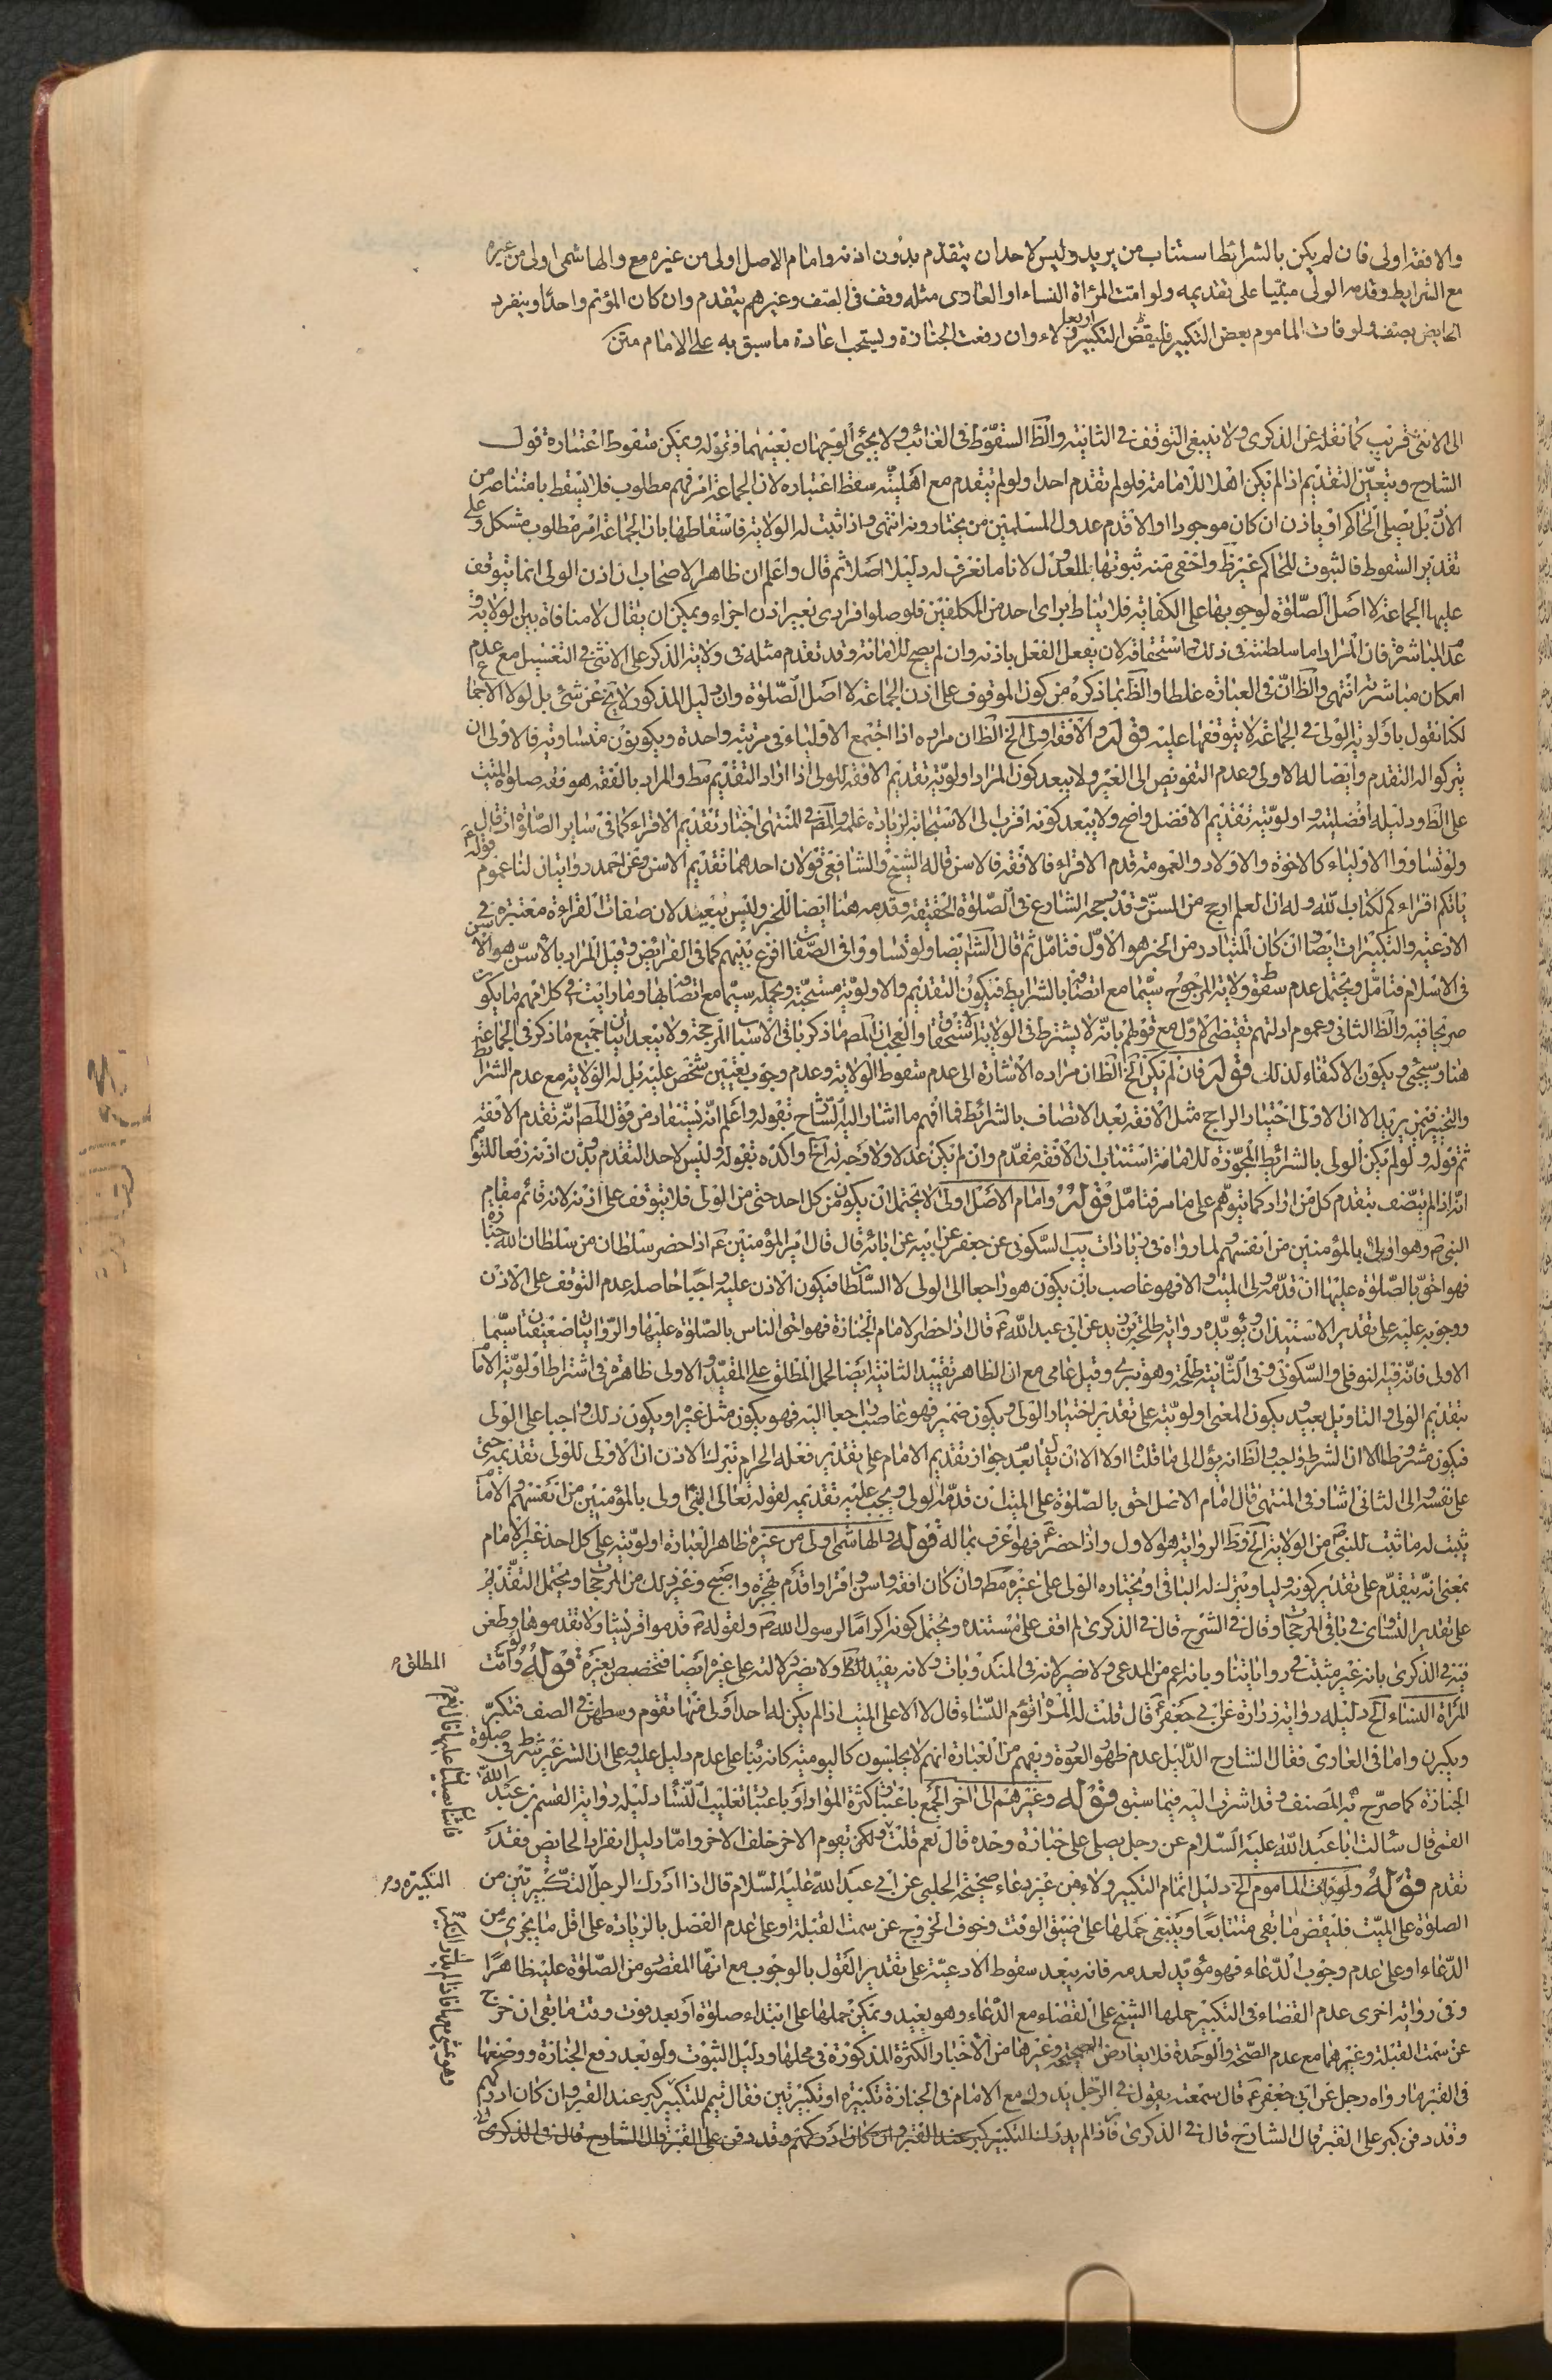 والافقه اولى فان لم يكن بالشرائط استناب من يريد وليس لاحد ان يتقدم بدون اذنه وامام الاصل اولى من غيره مع والهاشمى اولى من غيره
مع الشرايط وقدمه الولى مبنيا على تقديمه ولو امت المرأة النساء او العارى مثله وقف فى الصف وغيرهم يتقدم وان كان المؤتم واحدا وينفرد
الحايض بصف ولو فات الماموم بعض التكبير فليقض التكبير ولاء وان رفعت الجنازة ويستحب اعادة ما سبق به على الامام متن
الى الانثى قريب كما نقله عن الذكرى ولا ينبغى التوقف فى الثانية والظ السقوط فى الغائب ولا يجئى الوجهان بعينهما قوله ويمكن سقوط اعتباره قول
الشارح ويتعين التقديم اذا لم يكن اهلا للامامة فلو لم تقدم احدا ولو لم يتقدم مع اهليته سقط اعتباره لان الجماعة امر مهم مطلوب فلا يسقط بامتناعه من
الاذن بل يصلى الحاكم او ياذن ان كان موجودا والا قدم عدول المسلمين من يختارونه انتهى واذا ثبت له الولاية فاسقاطها بان الجماعة امر مطلوب مشكل وعلى
تقدير السقوط فالثبوت للحاكم غير ظ واخفى منه ثبوتها للعدول لانا ما نعرف له دليلا اصلا ثم قال واعلم ان ظاهر الاصحاب ان اذن الولى انما يتوقف
عليها الجماعة لا اصل الصلوة لوجوبها على الكفاية فلا يناط براى احد من المكلفين فلو صلوا فرادى بغير اذن اجزاء ويمكن ان يقال لا منافاة بين الولاية و
عدم المباشرة فان المراد اما سلطنته فى ذلك استحقاقه لان يفعل الفعل باذنه وان لم يصح للامامة وقد تقدم مثله فى ولاية الذكر على الانثى فى التغسيل مع عدم
امكان مباشرته انتهى والظ ان فى العبارة غلطا والظ بما ذكره من كون الموقوف على اذن الجماعة لا اصل الصلوة وان دليل المذكور لا يخ عن شئ بل لولا الاجما
لكنا نقول باولوية الولى فى الجماعة لا بتوقفها عليه قوله والافقه اولى الخ الظ ان مراده اذا اجتمع الاولياء فى مرتبة واحدة ويكونون متساويه فالاولى ان
يتركوا له التقدم وايضا له الاولى وعدم التفويض الى الغير ولا يبعد كون المراد اولوية تقديم الافقه للولى اذا اراد التقديم مط والمراد بالفقه هو فقه صلوة الميت
على الظ ودليله افضليته واولوية تقديم الافضل واضح ولا يبعد كونه اقرب الى الاستجابة لزيادة علمه والمص فى المنتهى اختار تقديم الاقراء كما فى ساير الصلوة اذ قال
ولو تساووا الاولياء كالاخوة والاولاد والعمومة قدم الاقراء فالافقه فالاسن قاله الشيخ والشافعى قولان احدهما تقديم الاسن وعن احمد روايتان لنا عموم قوله
ياتكم اقراءكم لكتاب الله وله ان العلم ارجح من السن وقد رجحه الشارع فى الصلوة الحقيقة وقدمه هنا ايضا للخبر وليس ببعيد لان صفات القراءة معتبرة فى
الادعية والتكبيرات ايضا وان كان المتبادر من الخبر هو الاول فتامل ثم قال الش ايضا ولو تساووا فى الصفات اقرع بينهم كما فى الفرايض وقيل المراد بالاسن هو الاسن
فى الاسلام فتامل ويحتمل عدم سقوط ولاية المرجوح سيما مع اتصافه بالشرايط فيكون التقديم والاولوية مستحبة ويحمله سيما مع اتصافه بها وما رايت فى كلامهم ما يكون
صريحا فيه والظ الثانى وعموم ادلتهم تقتضى الاول مع قولهم بانه لا يشترط فى الولاية الاستحقاق والعجب ان المص ما ذكر باقى الاسباب المرجحة ولا يبعد اتيان جميع ما ذكر فى الجماعة
هنا وسيجئ ويكون الاكتفاء لذلك قوله فان لم يكن الخ الظ ان مراده الاشارة الى عدم سقوط الولاية وعدم وجوب تعيين شخص عليه بل له الولاية مع عدم الشرائط
والتخيير فيمن يريد الا ان الاولى اختيار الراجح مثل الافقه بعد الاتصاف بالشرائط فما افهم ما اشار اليه الشارح بقوله واعلم انه يستفاد من قول المص انه تقدم الافقه
ثم قوله ولو لم يكن الولى بالشرائط المجوزة للامامة استناب ان الافقه مقدم وان لم يكن عدلا ولا وجه له الخ واكده بقوله وليس لاحد التقدم بدون اذنه رفعا للتوهم
انه اذا لم يتصف يتقدم كل من اراد كما يتوهم على ما مر فتامل قوله وامام الاصل اولى لا يحتمل ان يكون من كل احد حتى من الولى فلا يتوقف على اذنه لانه قائم مقام
النبى ص وهو اولى بالمؤمنين من انفسهم لما رواه فى زيادات يب السكونى عن جعفر عن ابيه عن ابائه قال قال امير المؤمنين ع اذا حضر سلطان من سلطان الله جنازة
فهو احق بالصلوة عليها ان قدمه ولى الميت والا فهو غاصب بان يكون هو راجعا الى الولى لا السلطان فيكون الاذن عليه واجبا حاصله عدم التوقف على الاذن
ووجوبه عليه على تقدير الاستيذان ويؤيده رواية طلحة بن زيد عن ابى عبد الله ع قال اذا حضر الامام الجنازة فهو احق الناس بالصلوة عليها والروايتان ضعيفتان سيما
الاولى فانه فيه النوفلى والسكونى وفى الثانية طلحة وهو بترى وقيل عامى مع ان الظاهر تقييد الثانية ايضا لحمل المطلق على المقيد والاولى ظاهرة فى اشتراط اولوية الامام
بتقديم الولى والتاويل بعيد ويكون المعنى اولويته على تقدير اختيار الولى ويكون ضمير فهو غاصب راجعا اليه فهو يكون مثل غيره او يكون ذلك واجبا على الولى
فيكون مشروطا الا ان الشرط واجب والظ انه يؤل الى ما قلنا اولا الا ان يقال بعد جواز تقديم الامام على تقدير فعله الحرام بترك الاذن ان الاولى للولى تقديمه حتى
على نفسه والى الثانى اشار فى المنتهى قال امام الاصل احق بالصلوة على الميت ان قدمه الولى ويجب عليه تقديمه لقوله تعالى النبى اولى بالمؤمنين من انفسهم والامام
يثبت له ما ثبت للنبى ص من الولاية الخ وظ الرواية هو الاول واذا حضر ع فهو اعرف بما له قوله والهاشمى اولى من غيره ظاهر العبارة اولويته على كل احد غير الامام
بمعنى انه يتقدم على تقدير كونه وليا ويترك له الباقى او يختاره الولى على غيره مط وان كان افقه واسن واقرا واقدم هجرة واصبح وغير ذلك من المرجحات ويحتمل التقديم
على تقدير التساوى فى باقى المرجحات وقال فى الشرح قال فى الذكرى لم اقف على مستنده ويحتمل كونه اكراما لرسول الله ص ولقوله ص قدموا قريشا ولا تقدموها وطعن
فيه فى الذكرى بانه غير مثبت فى رواياتنا وبانه اعم من المدعى ولا ضير لانه فى المندوبات ولانه يفيد الظ ولا يضر دلالته على غيره ايضا فتخصيص بغيره قوله ولو امت
المطلق
المرأة النساء الخ دليله رواية زرارة عن ابى جعفر ع قال قلت له المرأة تؤم النساء قال لا الا على الميت اذا لم يكن له احد اولى منها تقوم وسطهن فى الصف فتكبر
ويكبرن واما فى العارى فقال الشارح الدليل عدم ظهور العورة ويفهم من العبارة انهم لا يجلسون كاليومية كانه بناء على عدم دليل عليه وعلى ان الستر غير شرط فى صلوة
الجنازة كما صرح به المصنف وقد اشرت اليه فيما سبق قوله وغيرهم الى اخر الجمع باعتبار كثرة المواد او باعتبار تغليب النساء دليله رواية القسم بن عبد الله
القمى قال سئالت ابا عبد الله عليه السلام عن رجل يصلى على جنازة وحده قال نعم قلت ولكن يقوم الاخر خلف الاخر واما دليل انفراد الحايض فقد
تقدم قوله ولو فات الماموم الخ دليل اتمام التكبير ولاء من غير دعاء صحيحة الحلبى عن ابى عبد الله عليه السلام قال اذا ادرك الرجل التكبيرتين من
التكبيرة و
الصلوة على الميت فليقض ما بقى متتابعا وينبغى حملها على ضيق الوقت وخوف الخروج عن سمت القبلة او على عدم الفضل بالزيادة على اقل ما يجزى من
الدعاء او على عدم وجوب الدعاء فهو مؤيد لعدمه فانه يبعد سقوط الادعية على تقدير القول بالوجوب مع انها المقصود من الصلوة عليه ظاهرا
وفى رواية اخرى عدم القضاء فى التكبير حملها الشيخ على القضاء مع الدعاء وهو بعيد ويمكن حملها على ابتداء صلوة او بعد فوت وقت ما بقى ان خرج
عن سمت القبلة وغيرهما مع عدم الصحة والوحدة فلا يعارض الصحيحة وغيرها من الاخبار الكثيرة المذكورة فى محلها ودليل الثبوت ولو بعد رفع الجنازة ووضعها
فى القبر ما رواه رجل عن ابى جعفر ع قال سمعته يقول فى الرجل يدرك مع الامام فى الجنازة تكبيرة او تكبيرتين فقال يتم للتكبير كبر عند القبر وان كان ادركهم
وقد دفن كبر على القبر قال الشارح قال فى الذكرى فاذا لم يدرك التكبير كبر عند القبر وان كان ادركهم وقد دفن على القبر قال الشارح قال فى الذكرى